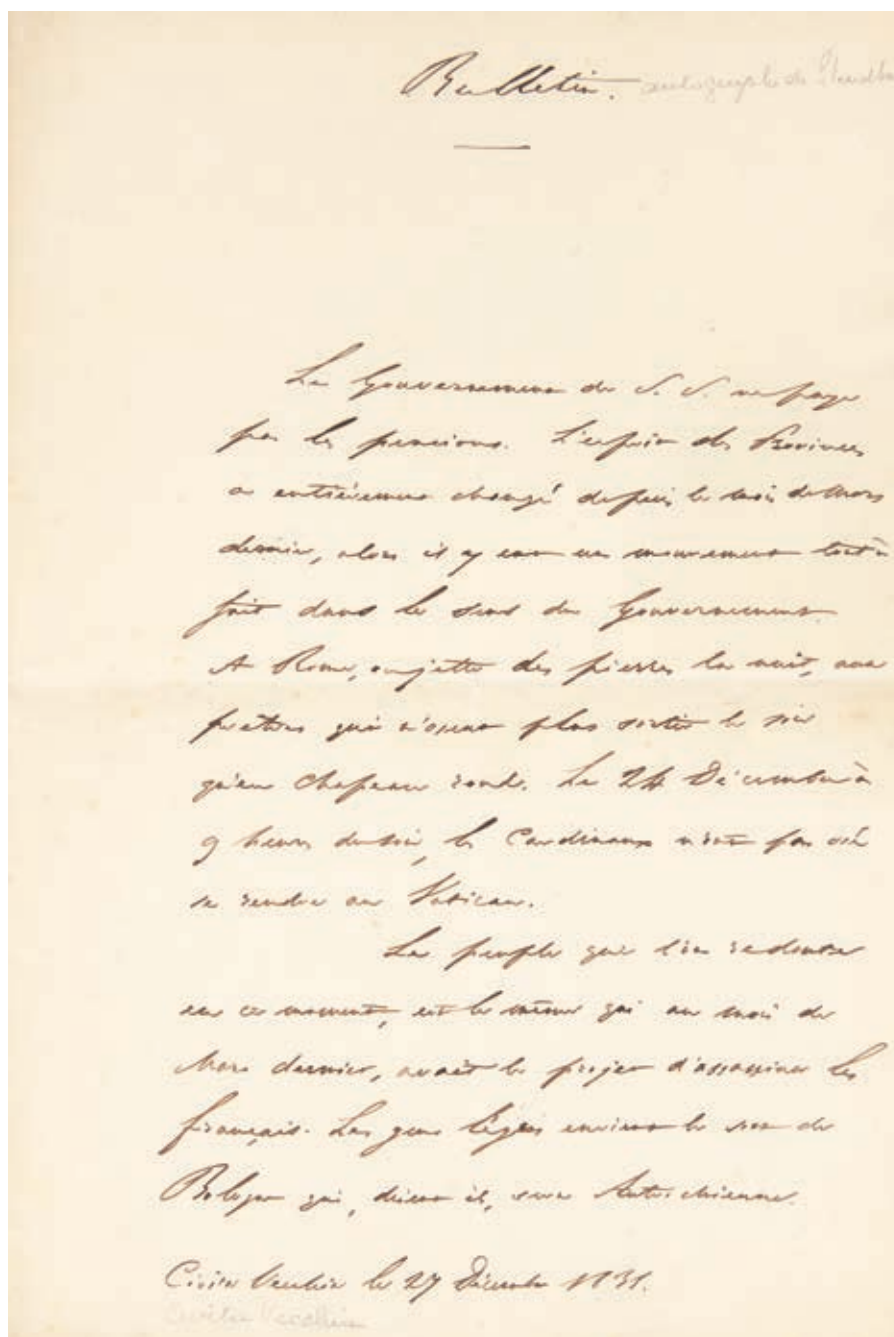 Bulletin. autographe de Stendhal
Le Gouvernement de S. S. ne paye
pas les pensions. L'esprit des Provinces
a entièrement changé depuis le mois de Mars
dernier, alors il y eut un mouvement tout à
fait dans le sens du Gouvernement.
A Rome, on jette des pierres la nuit, aux
prêtres qui n'osent plus sortir le soir
qu'en chapeau rond. Le 24 Décembre à
9 heures du soir, les Cardinaux n'ont pas osé
se rendre au Vatican.
Le peuple que l'on redoute
en ce moment, est le même qui au mois de
Mars dernier, avait le projet d'assassiner les
français. Les gens envient le sort de
Bologne qui, disent ils, sera Autrichienne.
Civita Vecchia le 27 Décembre 1831.
Civita Vecchia